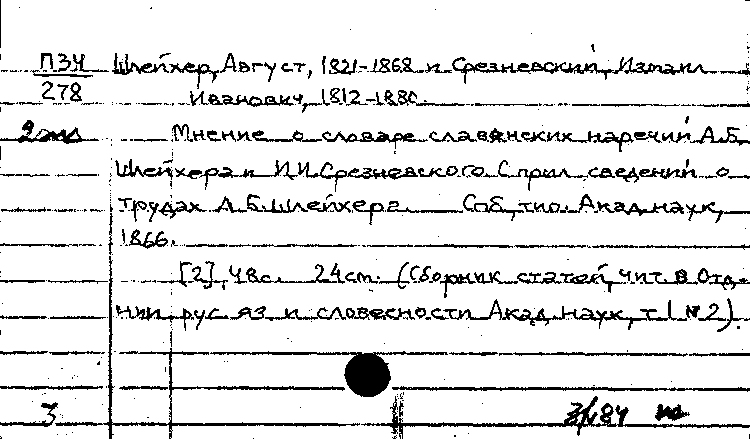 ПЗЧ Шлейхер, Август, 1821-1868 и Срезневский, Измаил
278 Иванович, 1812-1880.
2 экз Мнение о словаре славянских наречий А.Б.
Шлейхера и И.И.Срезневского. С прил сведений о
трудах А.Б.Шлейхера. Спб, тип. Акад. наук,
1866.
[2], 48с. 24см. (Сборник статей, чит. в Отд-
нии рус яз. и словесности Акад. наук, т 1 №2).
3